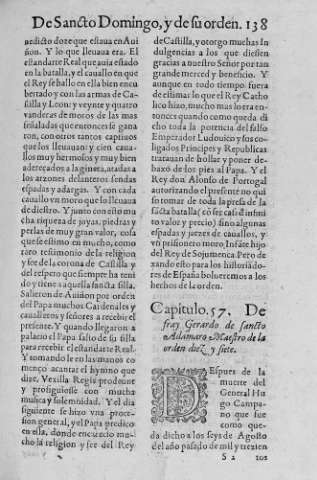 De Sancto Domingo, y de su orden. 138
nedicto doze que estaua en Aui
ñon. Y lo que lleuaua era. El
estandarte Real que auia estado
en la batalla, y el cauallo en que
el Rey se hallo en ella bien encu
bertado y con las armas de Ca-
stilla y Leon: y veynte y quatro
vanderas de moros de las mas
señaladas que entonces se gana
ron, con otros tantos captiuos
que los lleuauan: y cien caua-
llos muy hermosos y muy bien
adereçados a la gineta, atadas a
los arzones delanteros sendas
espadas y adargas. Y con cada
cauallo vn moro que lo lleuaua
de diestro. Y junto con esto mu
cha riqueza de joyas, piedras y
perlas de muy gran valor, cosa
que se estimo en mucho, como
raro testimonio de la religion
y fee de la corona de Castilla y
del respeto que siempre ha teni
do y tiene a aquella sancta silla.
Salieron de Auiñon por orden
del Papa muchos Cardenales y
caualleros y señores a recebir el
presente. Y quando llegaron a
palacio el Papa salio de su silla
para recebir el estandarte Real.
Y tomando le en las manos co
menço acantar el hymno que
dize, Vexilla Regis prodeunt
y prosiguiose con mucha
musica y solemnidad. Y el dia
siguiente se hizo vna proce-
sion general, y el Papa predico
en ella, donde encarecio mu-
cho la religion y fee del Rey
de Castilla, y otorgo muchas In
dulgencias a los que diessen
gracias a nuestro Señor por tan
grande merced y beneficio. Y
aunque en todo tiempo fuera
de estimar lo que el Rey Catho
lico hizo, mucho mas lo era en-
tonces quando como queda di
cho toda la potencia del falso
Emperador Ludouico y sus co-
ligados Principes y Republicas
tratauan de hollar y poner de-
baxo de los pies al Papa. Y el
Rey don Alonso de Portogal
autorizando el presente no qui
so tomar de toda la presa de la
sancta batalla (cõ ser casi de infini
to valor y precio) sino algunas
espadas y jaezes de cauallos, y
vn prisionero moro, Infante hijo
del Rey de Sojumenca. Pero de
xando esto para los historiado-
res de España bolueremos a los
hechos de la orden.
Capitulo. 57. De
fray Gerardo de sancto
Adamaro Maestro de la
orden diez y siete.
DEspues de la
muerte del
General Hugo
Campano
que fue
como que-
da dicho a los seys de Agosto
del año passado de mil y trezien
S 2
tos